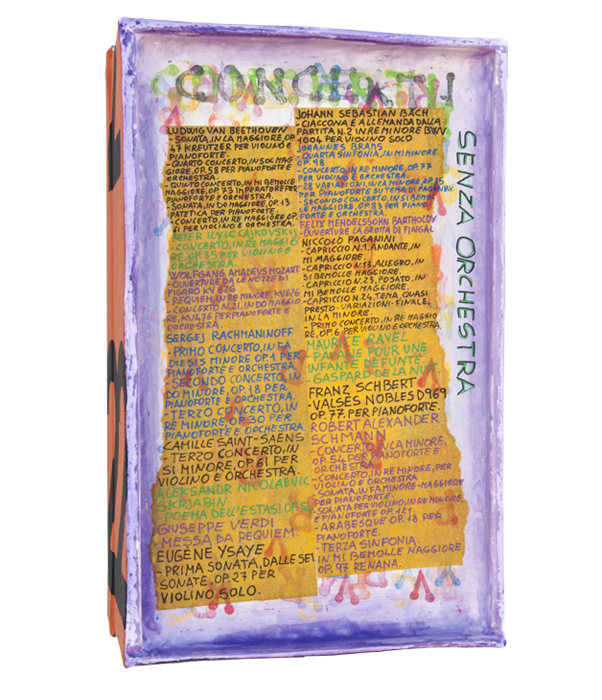 CONCERTI
SENZA ORCHESTRA
LUDWIG VAN BEETHOVEN
- SONATA, IN LA MAGGIORE, OP.
47 KREUTZER PER VIOLINO E
PIANOFORTE.
- QUARTO CONCERTO, IN SOL MAG
GIORE, OP. 58 PER PIANOFORTE E
ORCHESTRA.
- QUINTO CONCERTO, IN MI BEMOLLE
MAGGIORE, OP. 73 IMPERATORE PER
PIANOFORTE E ORCHESTRA.
- SONATA, IN DO MAGGIORE, OP. 13
PATETICA PER PIANOFORTE.
- CONCERTO, IN RE MAGGIORE, OP.
61 PER VIOLINO E ORCHESTRA.
PETER ILYIC CAIKOVSKIJ
- CONCERTO, IN RE MAGGIO
RE, OP. 35 PER VIOLINO E
ORCHESTRA.
WOLFGANG AMADEUS MOZART
- OUVERTURE DA LE NOZZE DI
FIGARO KV 626
- REQUIEM, IN RE MINORE, KV626
- CONCERTO N. 21, IN DO MAGGIO
RE, KV476 PER PIANOFORTE E
ORCHESTRA.
SERGEJ RACHMANINOFF
- PRIMO CONCERTO, IN FA
DIESIS MINORE OP. 1 PER
PIANOFORTE E ORCHESTRA.
- SECONDO CONCERTO, IN
DO MINORE, OP. 18 PER
PIANOFORTE E ORCHESTRA.
- TERZO CONCERTO, IN
RE MINORE, OP. 30 PER
PIANOFORTE E ORCHESTRA.
CAMILLE SAINT-SAENS
- TERZO CONCERTO, IN
SI MINORE, OP. 61 PER
VIOLINO E ORCHESTRA.
ALEKSANDR NICOLAEVIC
SKRJABIN
- POEMA DELL'ESTASI OP. 54
GIUSEPPE VERDI
- MESSA DA REQUIEM.
EUGÈNE YSAYE
- PRIMA SONATA, DALLE SEI
SONATE, OP. 27 PER
VIOLINO SOLO.
JOHANN SEBASTIAN BACH
- CIACCONA E ALLEMANDA DALLA
PARTITA N. 2 IN RE MINORE BWV
1004 PER VIOLINO SOLO
JOHANNES BRAMS
- QUARTA SINFONIA, IN MI MINORE,
OP. 98
- CONCERTO, IN RE MINORE, OP. 77
PER VIOLINO E ORCHESTRA.
- 28 VARIAZIONI, IN LA MINORE, OP. 35
PER PIANOFORTE SU TEMA DI PAGANINI.
- SECONDO CONCERTO, IN SI BEMOL
LE MAGGIORE, OP. 83 PER PIANO
FORTE E ORCHESTRA.
FELIX MENDELSSOHN BARTHOLDY
- OUVERTURE LA GROTTA DI FINGAL
NICCOLO PAGANINI
- CAPRICCIO N. 1, ANDANTE, IN
MI MAGGIORE.
- CAPRICCIO N. 13, ALLEGRO, IN
SI BEMOLLE MAGGIORE.
- CAPRICCIO N. 23, POSATO, IN
MI BEMOLLE MAGGIORE.
- CAPRICCIO N. 24, TEMA, QUASI
PRESTO - VARIAZIONI - FINALE,
IN LA MINORE.
- PRIMO CONCERTO, IN RE MAGGIO
RE, OP. 6 PER VIOLINO E ORCHESTRA.
MAURICE RAVEL
- PAVANE POUR UNE
INFANTE DÉFUNTE
- GASPARD DE LA NUIT
FRANZ SCHBERT
- VALSES NOBLES D969
OP. 77, PER PIANOFORTE.
ROBERT ALEXANDER
SCHMANN
- CONCERTO, IN LA MINORE,
OP. 54 PER PIANOFORTE E
ORCHESTRA
- CONCERTO, IN RE MINORE, PER
VIOLINO E ORCHESTRA
- SONATA, IN FA MINORE-MAGGIORE
PER PIANOFORTE.
- SONATA PER VIOLINO, IN RE MINORE,
E PIANOFORTE OP. 121.
- ARABESQUE OP. 18 PER
PIANOFORTE.
- TERZA SINFONIA
IN MI BEMOLLE MAGGIORE
OP. 97 RENANA.